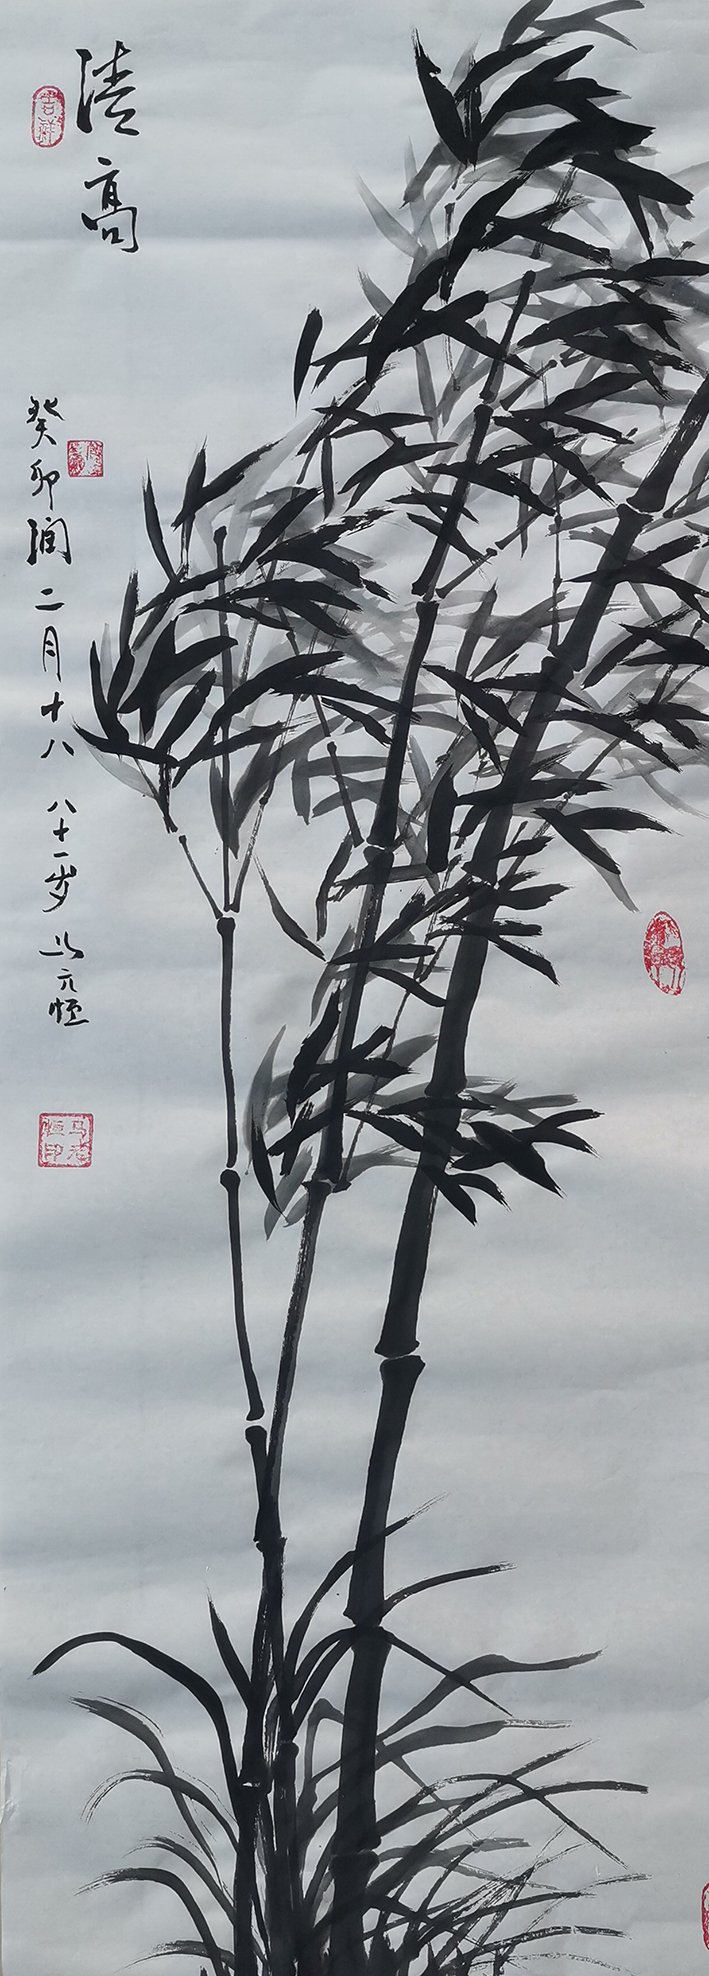 清高
吉祥
癸卯润二月十八 八十一岁 马元恒
马元恒印